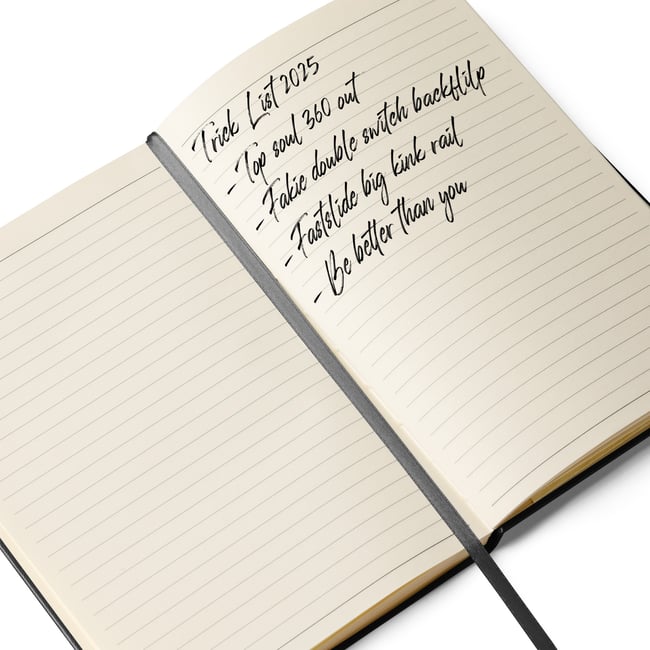 Trick List 2025
- Top soul 360 out
- Fakie double switch backflilp
- Fastslide big kink rail
- Be better than you